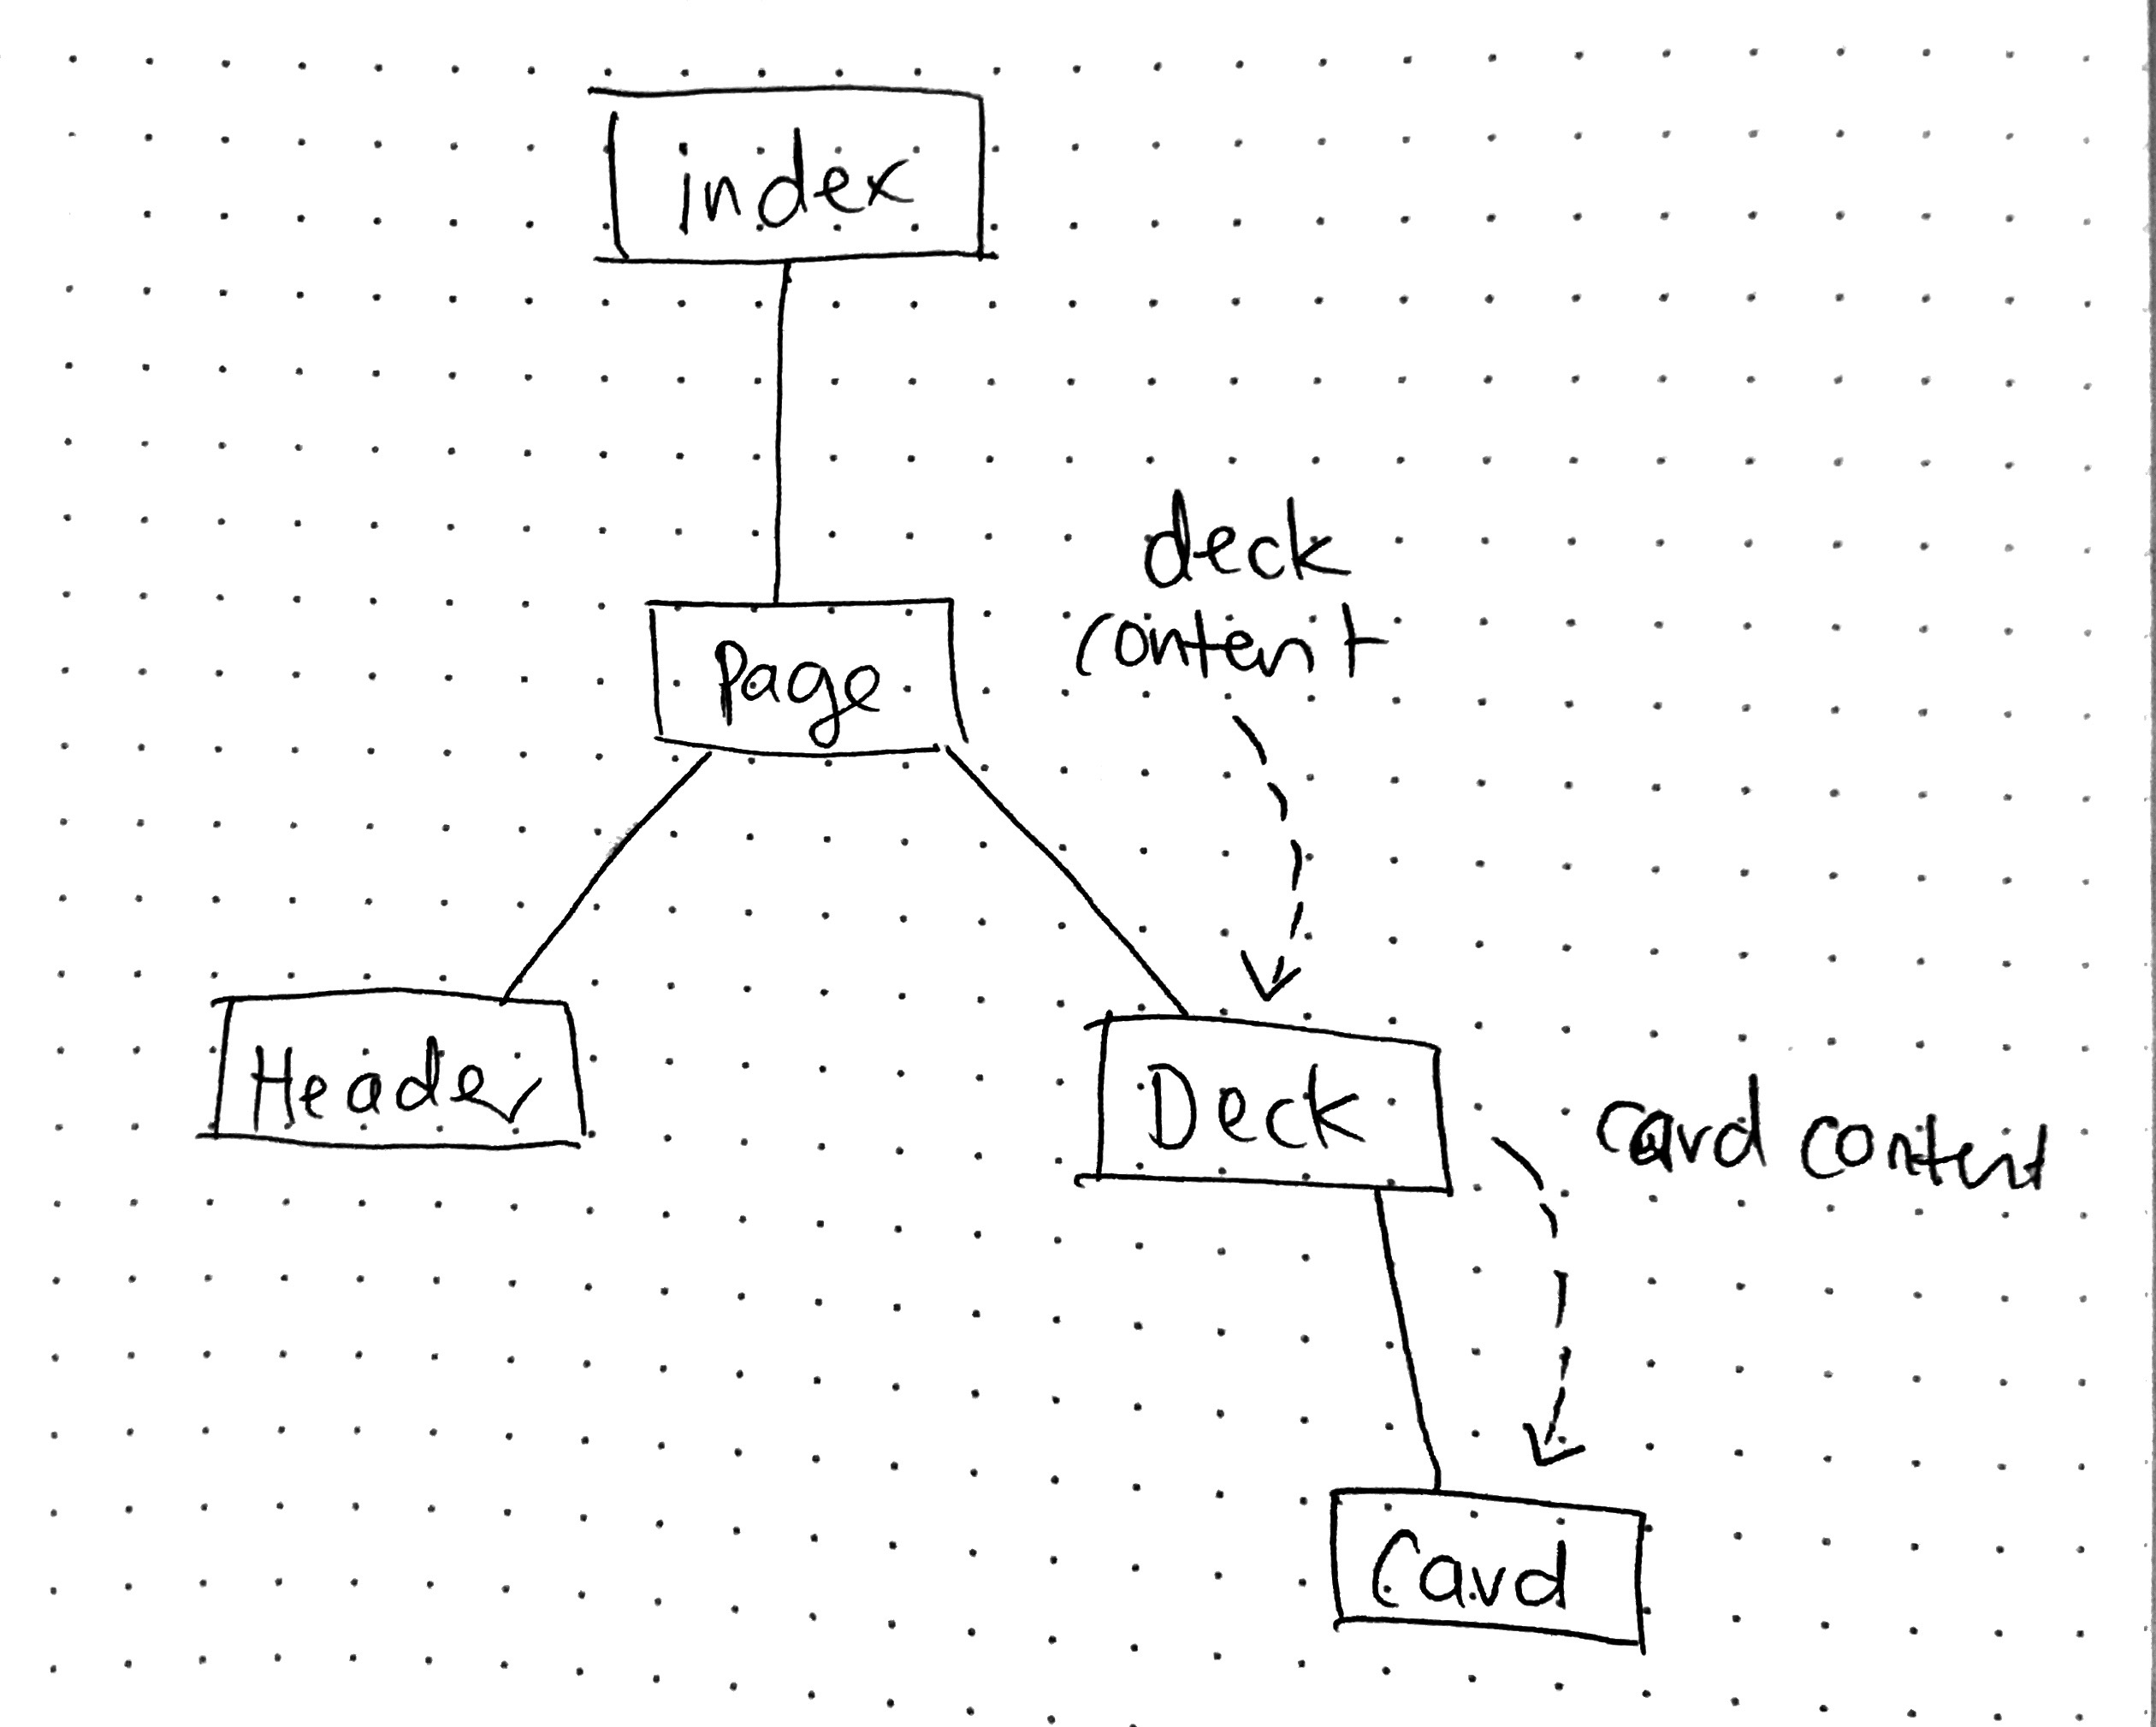 index
deck
content
Page
Header
Deck
card content
Card